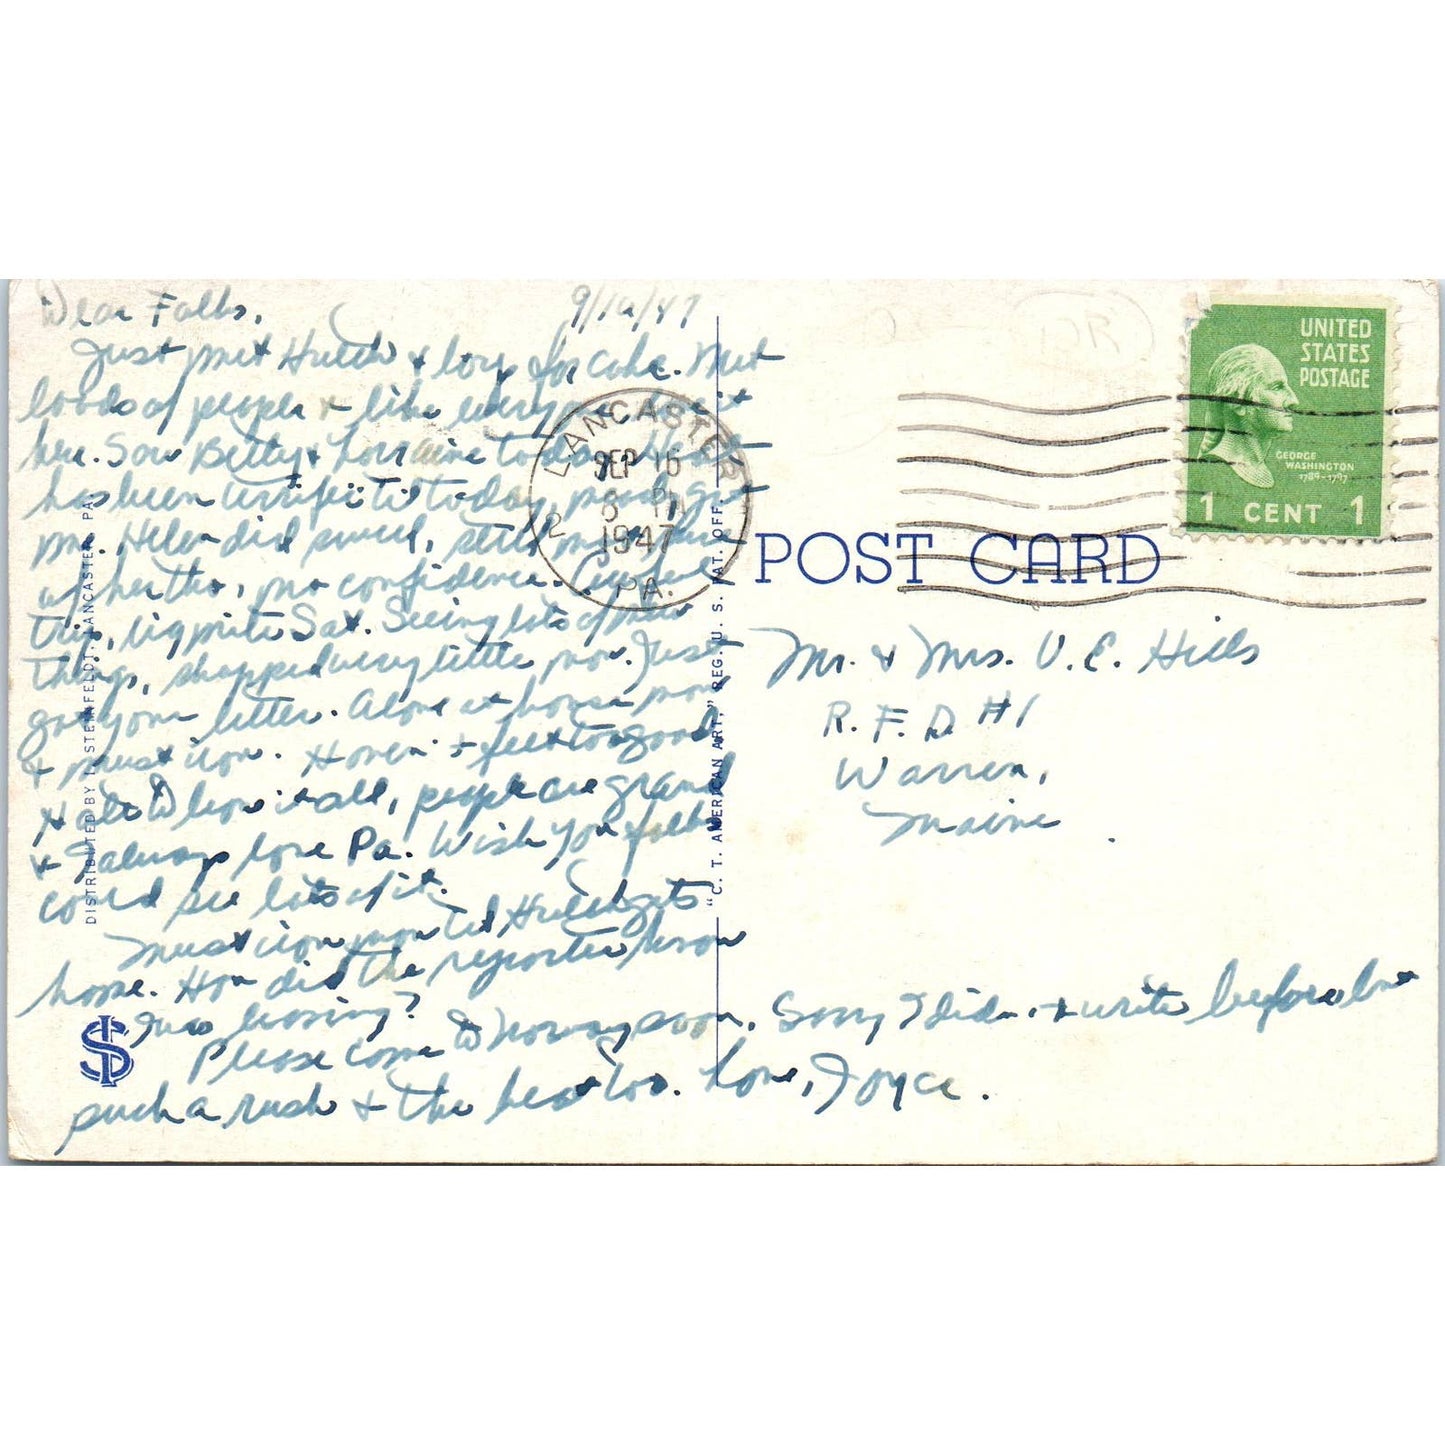 Dear Folks, 9/16/47
Just met & Lorp for coke. Met
loads of people & like everyone
here. Saw Betty & Lorraine today. Heat
has been terrific til today,
me. Helen did swell, still
of her tho, no confidence.
trip, big nite Sat. Seeing lots of new
things, shopped very little now. Just
got your letter. Alone at house now
& must iron. & feel too good.
Hate to leave it all, people are grand
& I always love Pa. Wish you folks
could see lots of it.
Must iron now til gets
home. How did the reporter know
I was leaving?
Please come to Norway soon. Sorry I didn't write before but
such a rush & the heat too. Love, Joyce.
LANCASTER
SEP 16
8 PM
1947
2
PA.
UNITED
STATES
POSTAGE
GEORGE
WASHINGTON
1789-1797
1 CENT 1
POST CARD
Mr. & Mrs. V. E. Hills
R. F. D. #1
Warren,
Maine
DISTRIBUTED BY I. STEINFELDT, LANCASTER, PA.
"C. T. AMERICAN ART," REG. U. S. PAT. OFF.